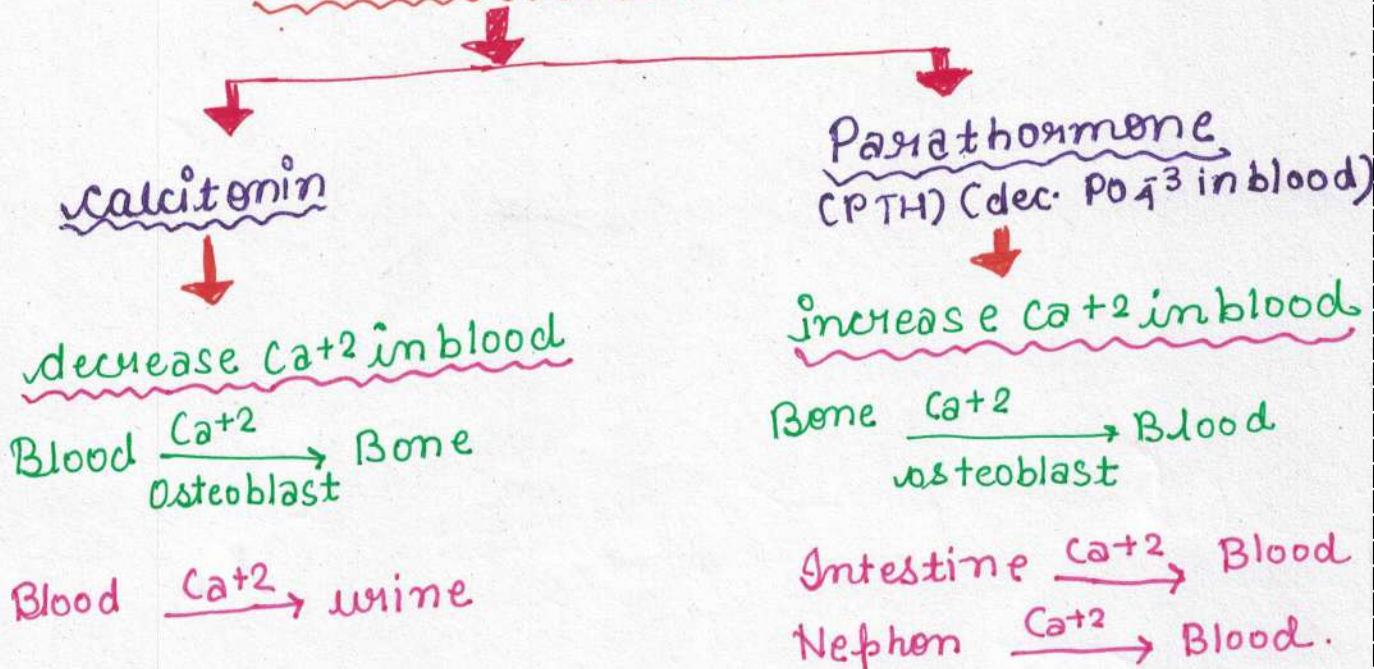 calcitonin
decrease Ca+2 in blood
Blood Ca+2 Bone
Osteoblast
Blood Ca+2 urine
Parathormone
(PTH) (dec. PO4-3 in blood)
increase Ca+2 in blood
Bone Ca+2 Blood
osteoblast
Intestine Ca+2 Blood
Nephon Ca+2 Blood.